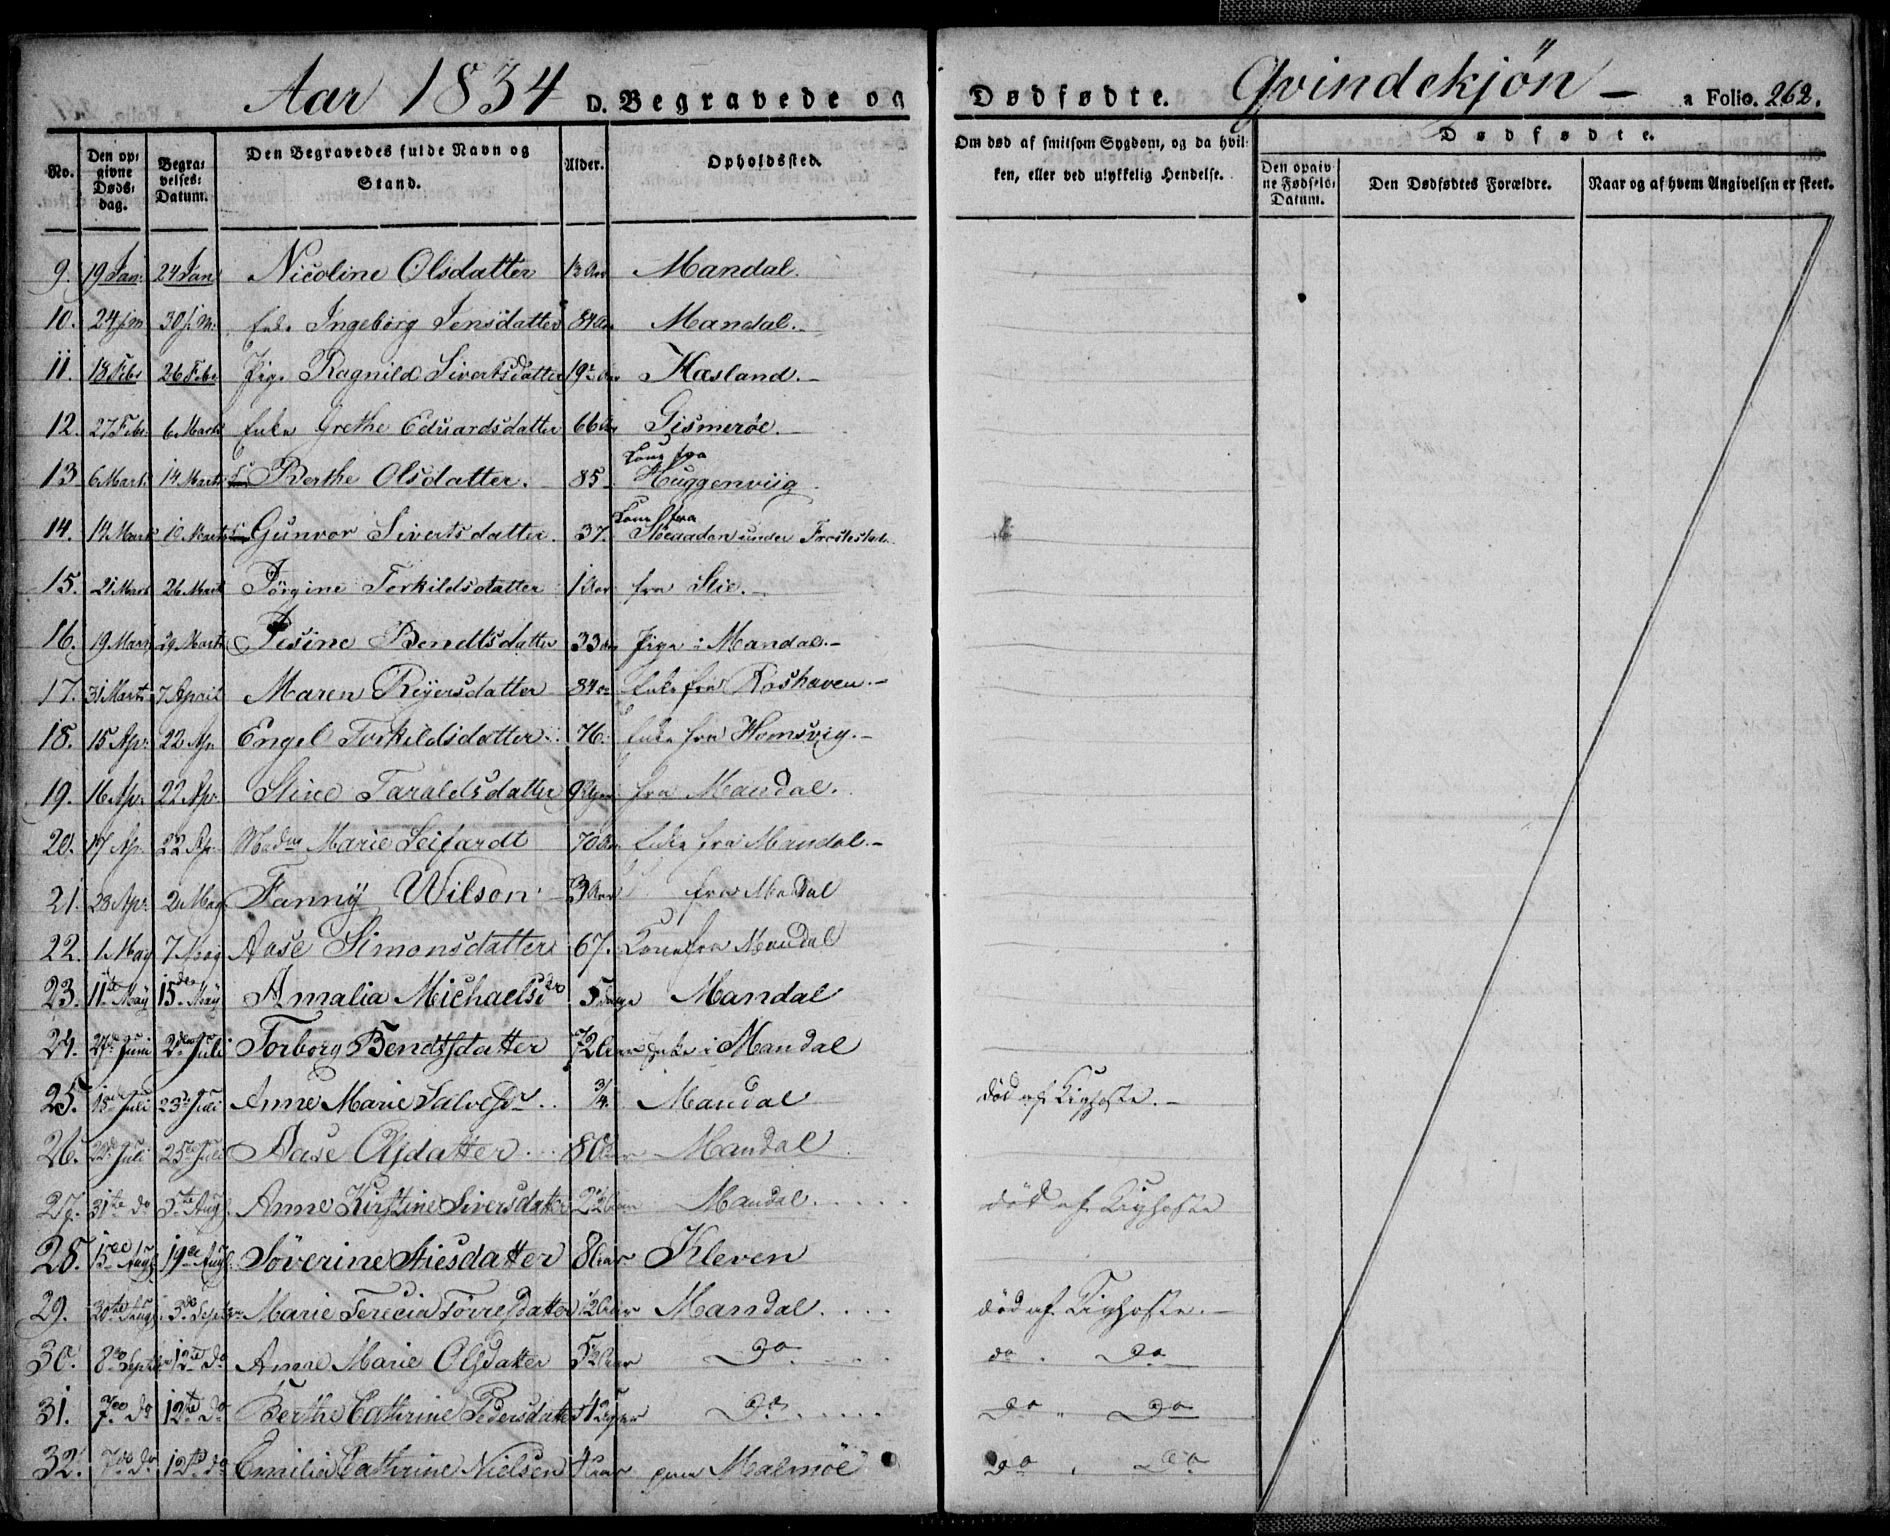 Aar 1834 D. Begravede og Dødfødte. Qvindekjøn — a Folio. 262.
No. Den opgivne Døds-dag. Begravelses-Datum. Den Begravedes fulde Navn og Stand. Alder. Opholdssted. Om død af smitsom Sygdom, og da hvilken, eller ved ulykkelig Hendelse. Dødfødte.
Den opgivne Fødsels-Datum. Den Dødfødtes Forældre. Naar og af hvem Angivelsen er skeet.
9. 19 Jan. 24 Jan Nicoline Olsdatter 13 Aar Mandal.
10. 24 s. M. 30 s. M. Enke Ingeborg Jensdatter 84 Aar Mandal.
11. 18 Febr 26 Febr Pige Ragnild Sivertsdatter 19 Aar Hasland.
12. 27 Febr. 6 Marts Enke Grethe Eduardsdatter 66 Aar Gismerøe.
13 6 Marts 14 Marts Berthe Olsdatter. 85 Kone fra Huggenviig
14. 14 Marts 19 Marts Gunvor Sivertsdatter. 37. Kone fra under Frøstestad
15. 21 Marts 26 Marts Jörgine Torkildsdatter 1 Aar fra Stie.
16. 19 Marts 29 Marts Jesine Bendtsdatter 33 Aar Pige i Mandal.
17. 31 Marts 7 April Maren Reyersdatter 84 Enke fra Risshaven.
18. 15 Apr. 22 Ap. Engel Torkildsdatter 76. Enke fra Homsvig.
19. 16 Apr. 22 Apr. Stine Taraldsdatter 9 Uger fra Mandal.
20. 17 Ap. 22 Ap. Madm Marie Seifardt 70 Aar Enke fra Mandal.
21. 28 Apr. 2 May Fanny Wilson 3 Aar fra Mandal
22. 1 May 7 May Aase Simonsdatter 67. Kone fra Mandal
23. 11te May 15de May Amalia Michaelsdr 5 Dage Mandal
24. 27de Juni 2den Juli Torborg Bendtsdatter 72 Aar Enke i Mandal
25. 15de Juli 23de Juli Anne Marie Salvesdr 3/4. Mandal død af Kighoste.
26. 22de Juli 25de Juli Aase Olsdatter 80 Aar Mandal
27. 31te do 5te Aug. Anne Kirstine Siversdatter 2 1/2 Aar Mandal død af Kighoste
28. 15de Augs 19de Augs. Söverine Stiesdatter 8 Aar Kleven
29. 30te Augs. 3de Septbr Marie Terecia Törresdatter 1/2 Aar Mandal død af Kighoste.
30. 8de Septbr 12te do Anne Marie Olsdatter 5 1/2 Aar Do do Do
31. 7de do 12te do Berthe Cathrine Pedersdatter Do Do Do
32. 7de do 12te do Emilia Cathrine Nielsen 4 Aar paa Malmöe Do Do